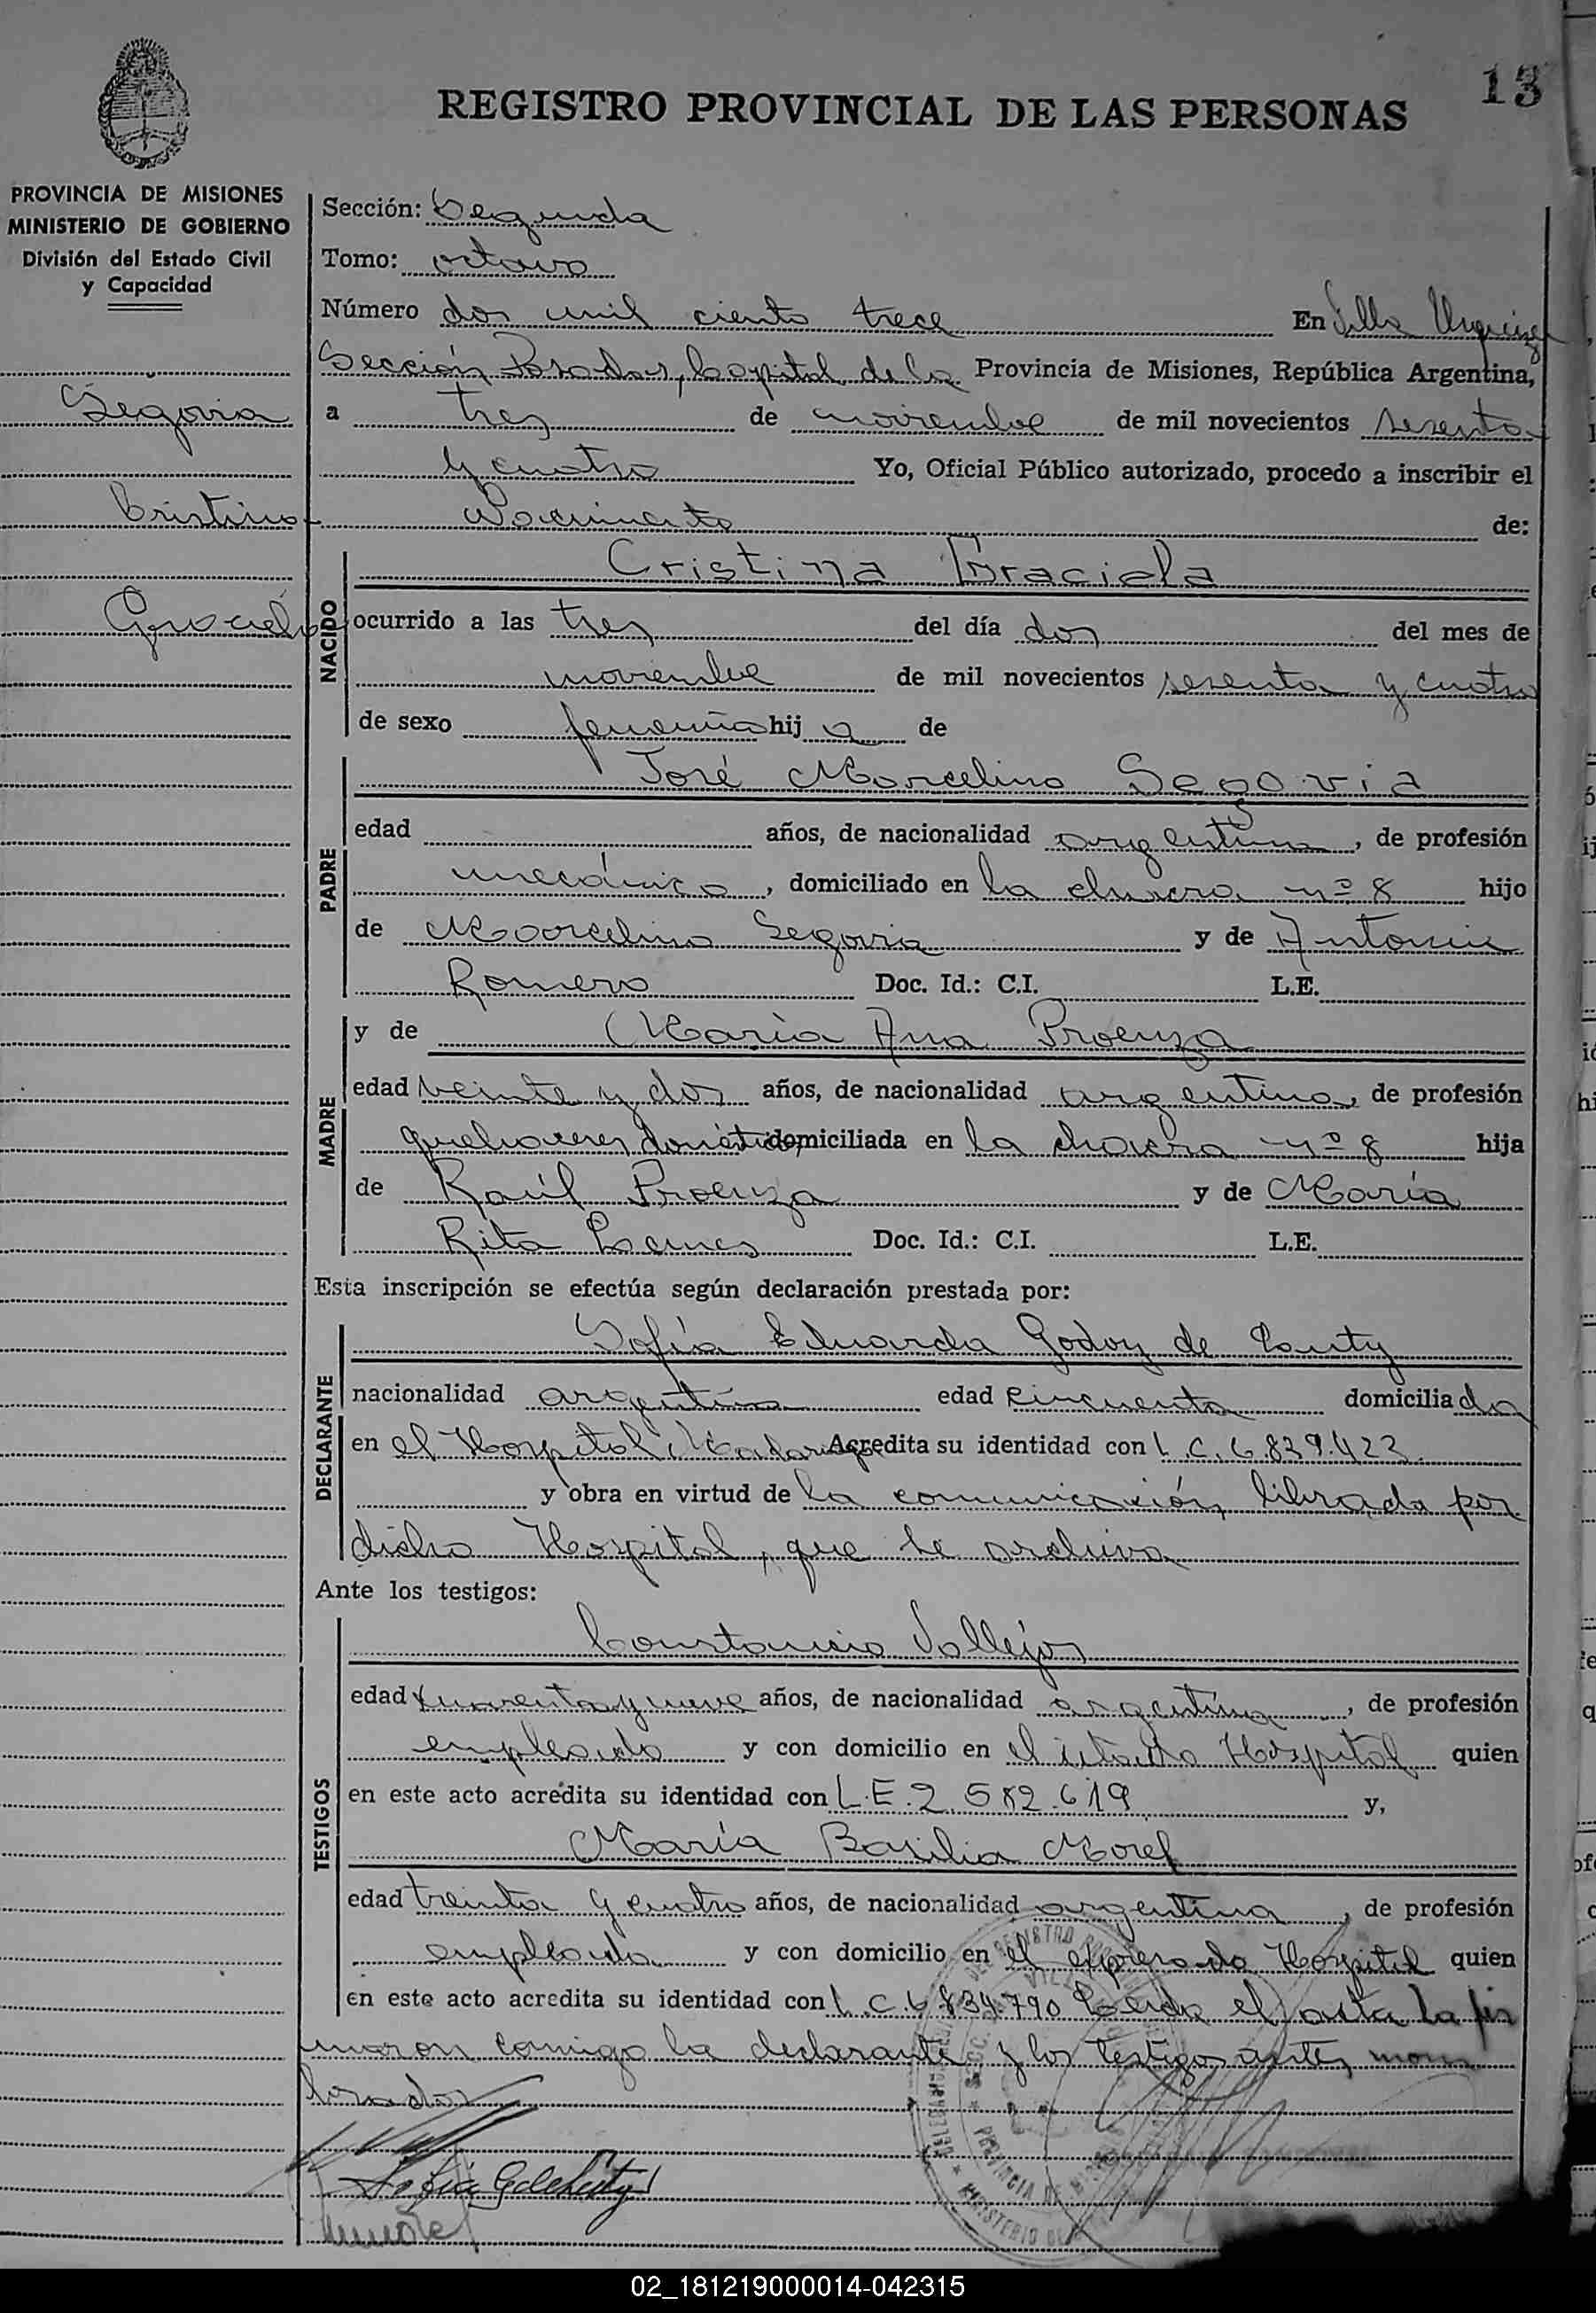 13
REGISTRO PROVINCIAL DE LAS PERSONAS
PROVINCIA DE MISIONES
MINISTERIO DE GOBIERNO
División del Estado Civil
y Capacidad
Segovia
Cristina
Graciela
Sección: Segunda
Tomo: octavo
Número dos mil ciento trece En Villa Urquiza
Sección Posadas, Capital de la Provincia de Misiones, República Argentina,
a tres de noviembre de mil novecientos sesenta
y cuatro Yo, Oficial Público autorizado, procedo a inscribir el
Nacimiento de:
NACIDO
Cristina Graciela
ocurrido a las tres del día dos del mes de
noviembre de mil novecientos sesenta y cuatro
de sexo femenino hij a de
PADRE
José Marcelino Segovia
edad años, de nacionalidad argentina, de profesión
mecánico, domiciliado en la chacra nº 8 hijo
de Marcelino Segovia y de Antonia
Romero Doc. Id.: C.I. L.E.
MADRE
y de María Ana Proenza
edad veinte y dos años, de nacionalidad argentina, de profesión
quehaceres domésticos, domiciliada en la chacra nº 8 hija
de Raúl Proenza y de María
Rita Doc. Id.: C.I. L.E.
Esta inscripción se efectúa según declaración prestada por:
DECLARANTE
Sofía Eduarda Godoy de
nacionalidad argentina edad cincuenta domiciliada
en el Hospital Madariaga Acredita su identidad con L.C. 6.839.423
y obra en virtud de la comunicación, librada por
dicho Hospital, que se archiva
Ante los testigos:
TESTIGOS
Constancio Vallejos
edad cuarenta y nueve años, de nacionalidad argentina, de profesión
empleado y con domicilio en el citado Hospital quien
en este acto acredita su identidad con L.E. 2.582.619 y,
María Basilia Morel
edad treinta y cuatro años, de nacionalidad argentina, de profesión
empleada y con domicilio en el expresado Hospital quien
en este acto acredita su identidad con L.C. 6.834.790 Leida el acta la fir
maron conmigo la declarante y los testigos antes mom
brados
02_181219000014-042315